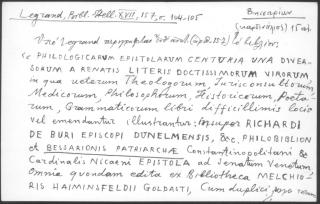 Legrand, Bibl. Hell. XVII, 157, σ. 104-105
Vide Legrand
Se PHILOLOGICARUM EPISTOLARUM CENTURIA UNA DIVER-
SORUM A RENATIS LITERIS DOCTISSIMORUM VIRORUM
in qua veterum Theologorum, Jurisconsultorum,
Medicorum, Philosophorum, Historicorum, Poeta-
rum, Grammaticorum libri difficillimis locis
vel emendantur illustrantur: Insuper RICHARDI
DE BURI EPISCOPI DUNELMENSIS, &c. PHILOBIBLION
et BESSARIONIS PATRIARCHAE Constantinopolitani &
Cardinalis Nicaeni EPISTOLA ad Senatum Venetum.
Omnia quondam edita ex Bibliotheca MELCHIO-
RIS HAIMINSFELDII GOLDASTI, Cum duplici